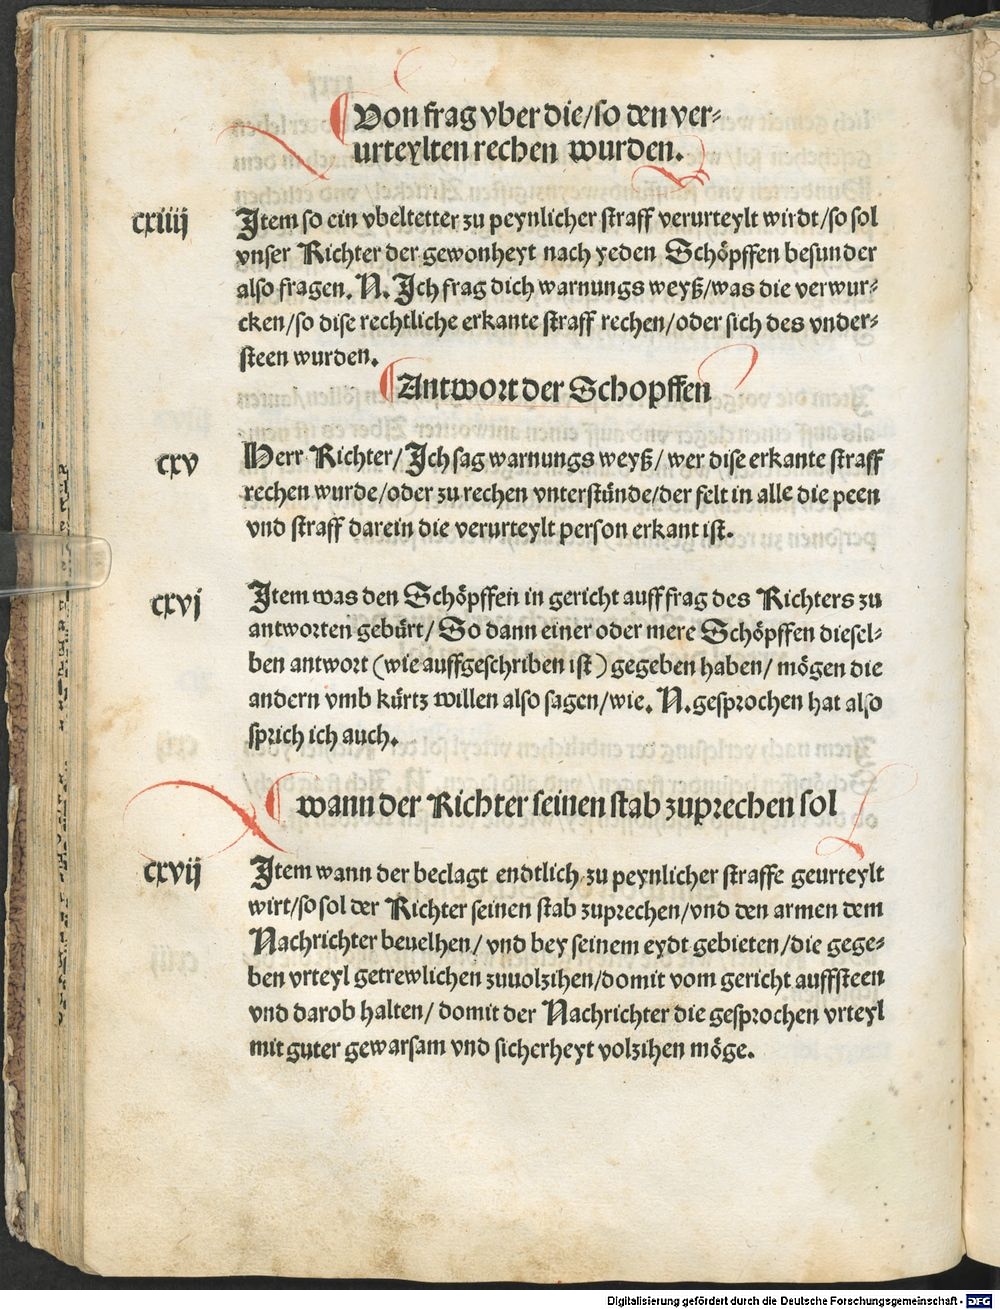 Von frag vber die/so den ver-
urteylten rechen wurden.
cxiiij
Item so ein vbeltetter zu peynlicher straff verurteylt wirdt/so sol
vnser Richter der gewonheyt nach yeden Schöpffen besunder
also fragen. N. Ich frag dich warnungs weyß/was die verwur-
cken/so dise rechtliche erkante straff rechen/oder sich des vnder-
steen wurden.
Antwort der Schopffen
cxv
Herr Richter/Ich sag warnungs weyß/wer dise erkante straff
rechen wurde/oder zu rechen vnterstünde/der felt in alle die peen
vnd straff darein die verurteylt person erkant ist.
cxvj
Item was den Schöpffen in gericht auff frag des Richters zu
antworten gebürt/So dann einer oder mere Schöpffen diesel-
ben antwort (wie auffgeschriben ist) gegeben haben/mögen die
andern vmb kürtz willen also sagen/wie. N. gesprochen hat also
sprich ich auch.
wann der Richter seinen stab zuprechen sol
cxvij
Item wann der beclagt endtlich zu peynlicher straffe geurteylt
wirt/so sol der Richter seinen stab zuprechen/vnd den armen dem
Nachrichter beuelhen/vnd bey seinem eydt gebieten/die gege-
ben vrteyl getrewlichen zuuolzihen/domit vom gericht auffsteen
vnd darob halten/domit der Nachrichter die gesprochen vrteyl
mit guter gewarsam vnd sicherheyt volzihen möge.
Digitalisierung gefördert durch die Deutsche Forschungsgemeinschaft - DFG